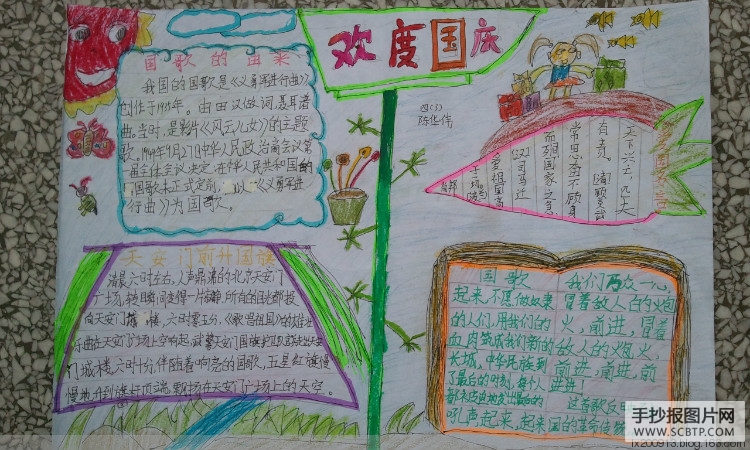 欢度国庆
国歌的由来
我国的国歌是《义勇军进行曲》
创作于1935年。由田汉做词,聂耳谱
曲。当时,是影片《风云儿女》的主题
歌。1949年9月27日中华人民政治商会议第
一届主体会议决定,在中华人民共和国的
国歌未正式定制,以《义勇军进
行曲》为国歌。
四(3)
陈华伟
天下兴亡,匹夫
有责。
常思奋不顾身
而殉国家之急
司马迁
天安门前升国旗
清晨六时左右,人声鼎沸的北京天安门
广场,转瞬间变得一片寂静,所有的目光都投
向天安门城楼,六时零五分,《歌唱祖国》的
乐曲在天安门广场上空响起,武警天安门国旗护卫队走出天安
门城楼,六时十分,伴随着响亮的国歌,五星红旗慢
慢地升到旗杆顶端,飘扬在天安门广场上的天空。
国歌
起来,不愿做奴隶
的人们,用我们的
血肉筑成我们新的
长城。中华民族到
了最后的时刻,每个人
都被迫着发出最后的
吼声起来,起来
我们万众一心,
冒着敌人的炮
火,前进,冒着
敌人的炮火,
前进,前进,前
进进!
这首歌
国的革命传
手抄报图片网
WWW.SCBTP.COM